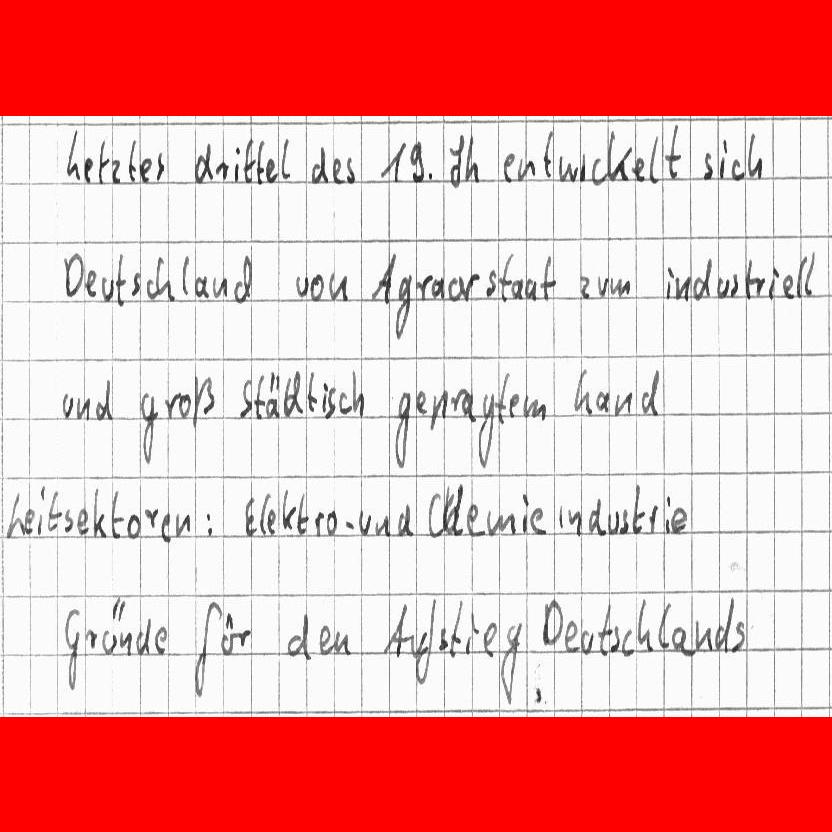 Letztes drittel des 19. Jh entwickelt sich
Deutschland von Agraarstaat zum industriell
und groß städtisch gepragtem Land
Leitsektoren: Elektro-und Chemie industrie
Gründe für den Aufstieg Deutschlands